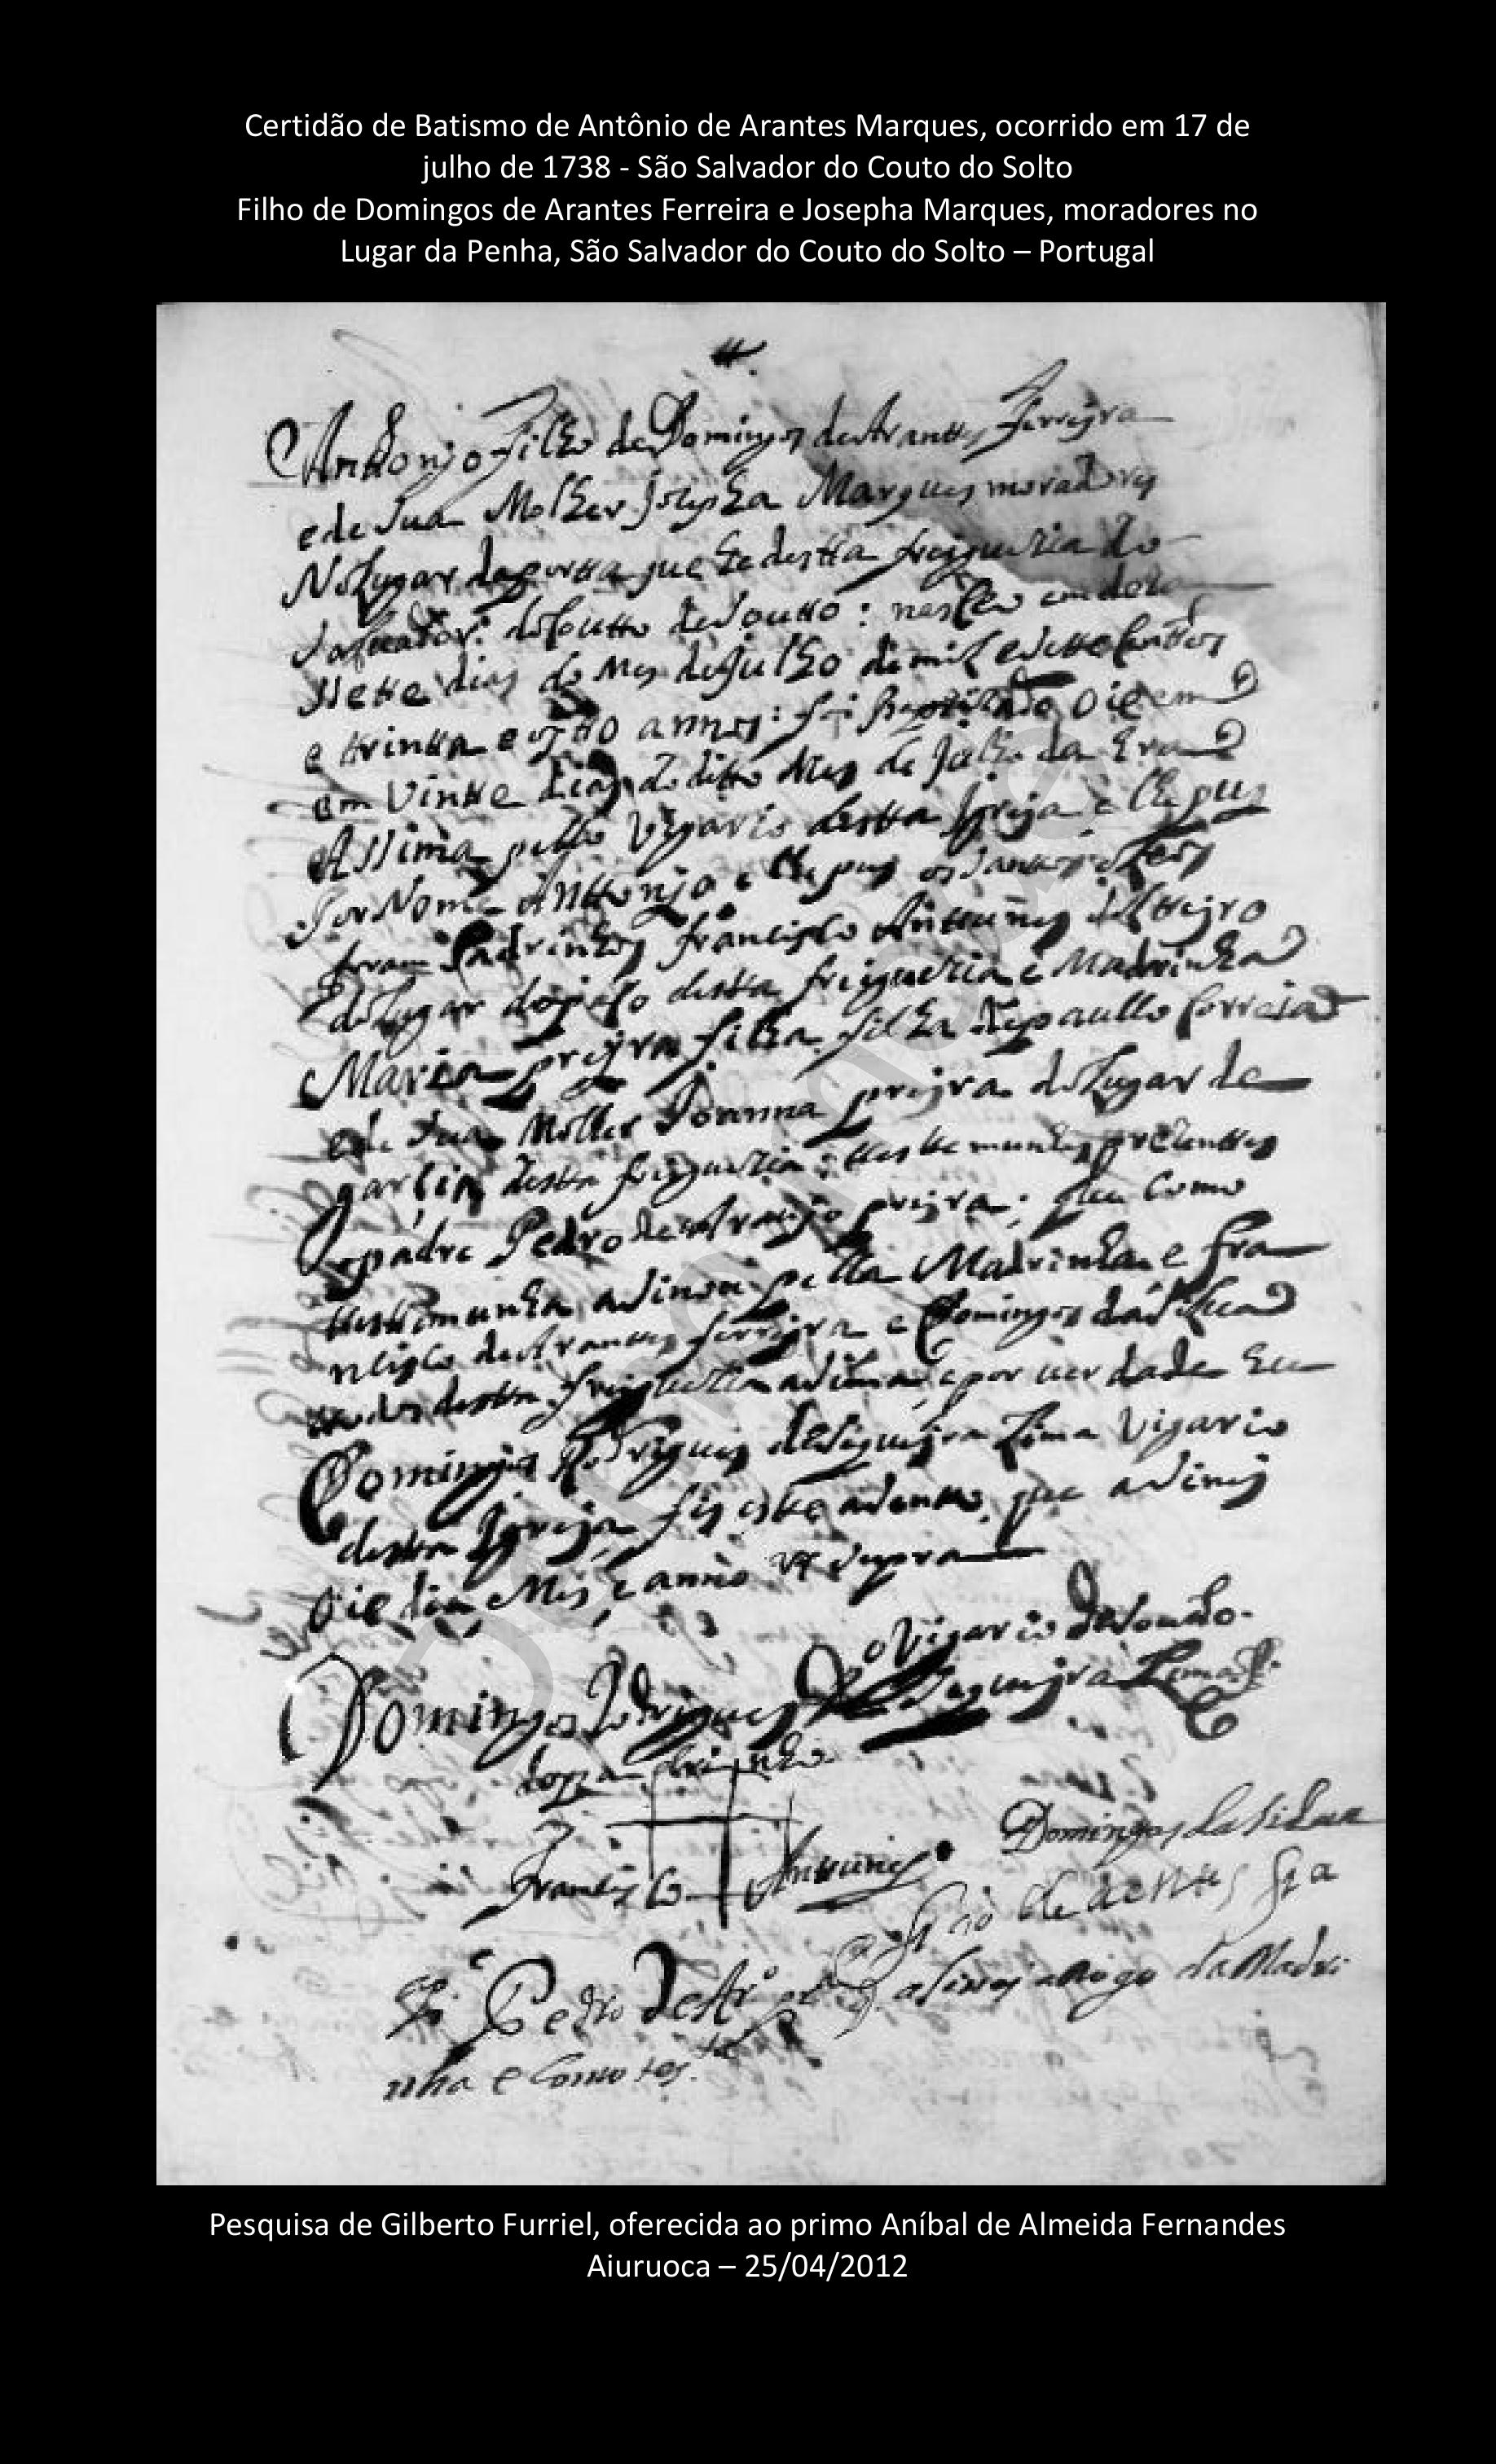 Certidão de Batismo de Antônio de Arantes Marques, ocorrido em 17 de
julho de 1738 - São Salvador do Couto do Solto
Filho de Domingos de Arantes Ferreira e Josepha Marques, moradores no
Lugar da Penha, São Salvador do Couto do Solto – Portugal
Anttonjo filho de Domingos de Aranttes Ferreyra
e de sua Molher Josepha Marques moradores
No Lugar da que he destta freiguezia do
Salvador do Coutto de Soutto : nasceo em
sette dias do Mes de Julho de mil e sette
e trinta e outto annos : foi Baptizado oie em
em Vinte dias do ditto Mes de Julho da Era
assima pello Vigario destta Igreja e lhe pus
por Nome Anttonjo e lhe pus os santtos oleos
foram Padrinhos francisco Anttunes solteiro
do Lugar do destta freiguezia e Madrinha
Maria preyra filha filha de paullo Correia
e de sua Molher Joanna preyra do Lugar de
destta freiguezia : testtemunhas prezenttes
O padre Pedro de Araujo preyra ; que como
testtemunha asinou pella Madrinha e fra
ncisco de Aranttes ferreyra e Domingos da Silva
destta freiguezia por verdade Eu
Domingos Rodrigues de Siqueyra Lima Vigario
destta Igreja fis este asentto que asinej
oie dia Mes e anno ut supra
o Vigario de Soutto
Domingos Rodrigues de Siqueyra Lima
do padrinho
Francisco Anttunes
Domingos da Silva
de
Pe. Pedro de Arº asinej a Rogo da Madri
nha e como tes.ta
Pesquisa de Gilberto Furriel, oferecida ao primo Aníbal de Almeida Fernandes
Aiuruoca – 25/04/2012